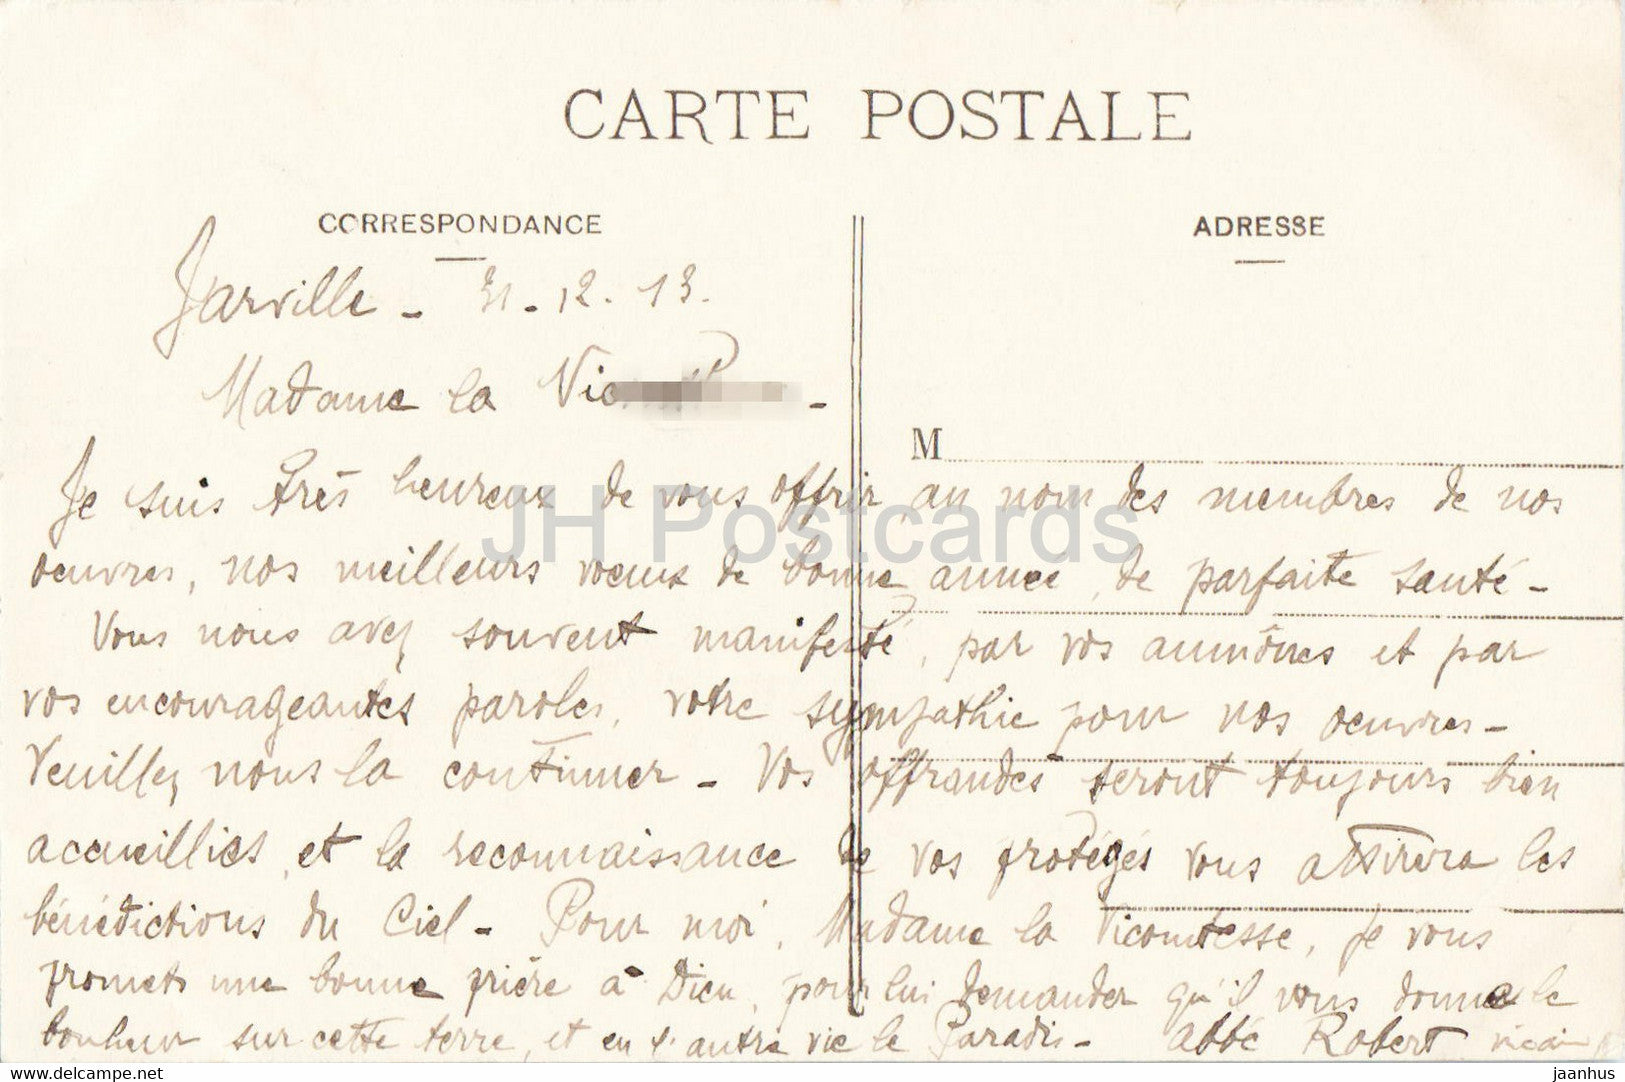 CARTE POSTALE
CORRESPONDANCE
ADRESSE
Jarville - 31-12.13.
Madame la Vic
M
Je suis très heureux de vous offrir, au nom des membres de nos
oeuvres, nos meilleurs voeux de bonne année, de parfaite santé -
Vous nous avez souvent manifesté, par vos aumônes et par
vos encourageantes paroles, votre sympathie pour nos oeuvres -
Veuillez nous la continuer - Vos offrandes seront toujours bien
accueillies, et la reconnaissance de vos protégés vous attirera les
bénédictions du Ciel - Pour moi, Madame la Vicomtesse, je vous
promets une bonne prière à Dieu, pour lui demander qu'il vous donne le
bonheur sur cette terre, et en l'autre vie le Paradis - abbé Robert vicaire
JH Postcards
www.delcampe.net
jaanhus